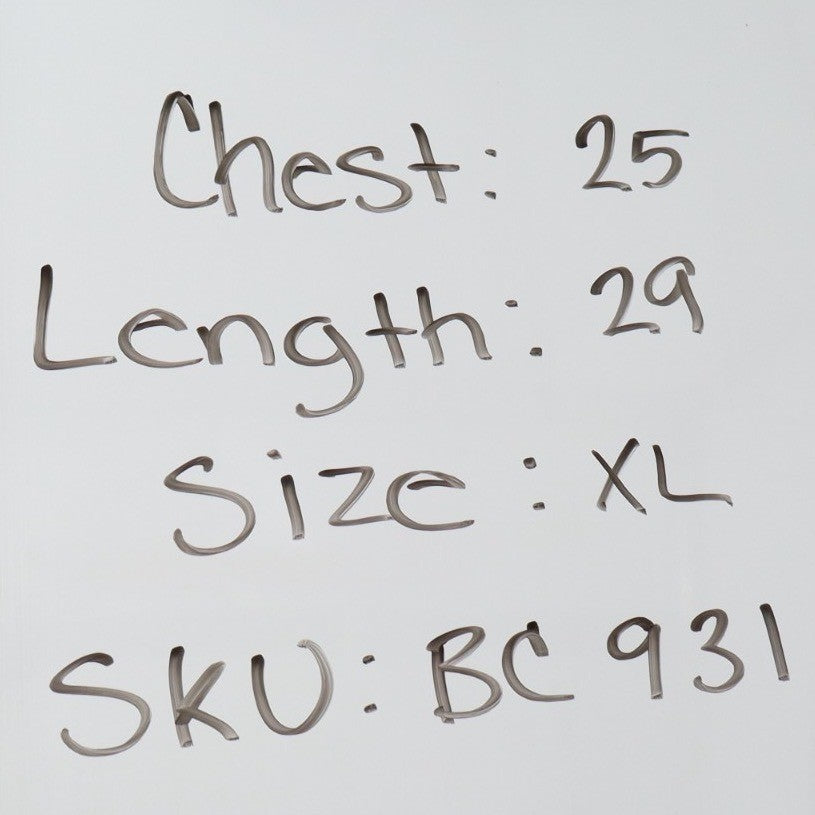 Chest: 25
Length: 29
Size: XL
SKU: BC 931